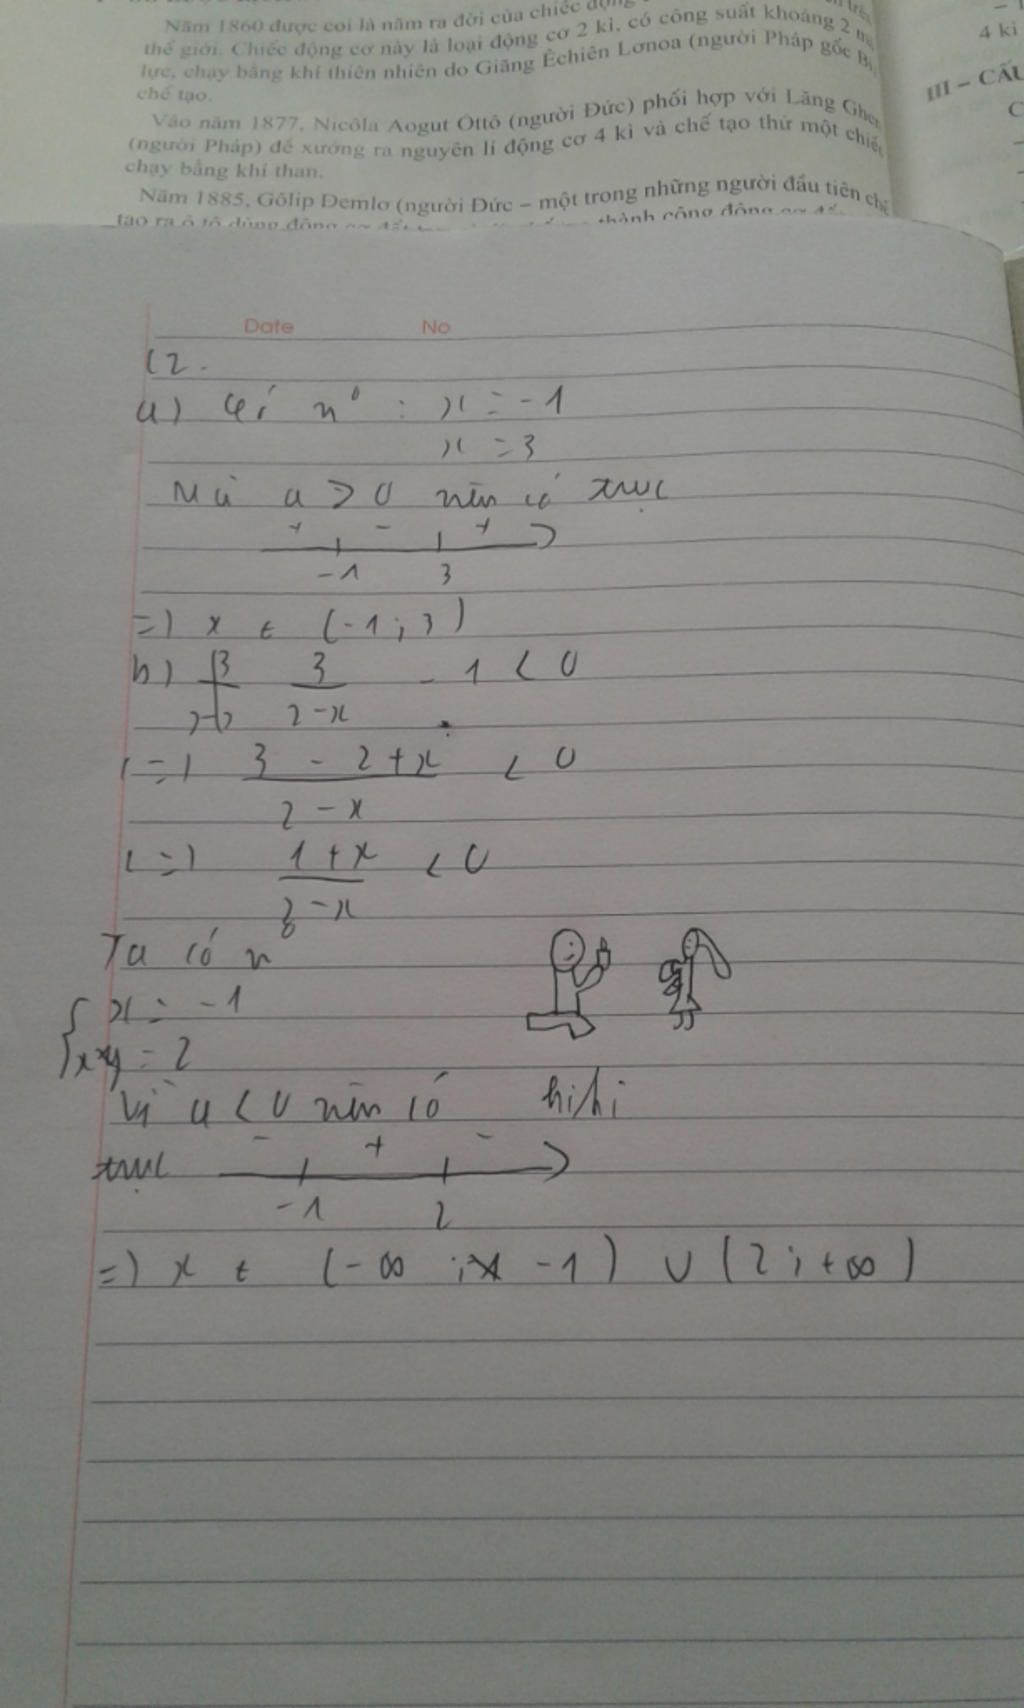 Năm 1860 được coi là năm ra đời của chiếc động
thế giới. Chiếc động cơ này là loại động cơ 2 kì, có công suất khoảng 2 mã
lực, chạy bằng khí thiên nhiên do Giăng Êchiên Lơnoa (người Pháp gốc Bỉ)
chế tạo.
Vào năm 1877, Nicôla Aogut Ôttô (người Đức) phối hợp với Lăng Ghen
(người Pháp) đề xướng ra nguyên lí động cơ 4 kì và chế tạo thử một chiếc
chạy bằng khí than.
Năm 1885, Gôlip Đemlơ (người Đức – một trong những người đầu tiên chế
tạo ra ô tô dùng động cơ thành công động cơ
4 kì
III – CẤU
C
Date No
C2.
a) Có n⁰ : x = -1
x = 3
Mà a > 0 nên có trục
+ - +
-1 3
=) x ∈ (-1 ; 3)
b) 3/(2-x) - 1 < 0
(=) (3 - 2 + x)/(2 - x) < 0
(=) (1 + x)/(2 - x) < 0
Ta có n⁰
{ x = -1
x = 2
Vì a < 0 nên có hihi
trục - + -
-1 2
=) x ∈ (-∞ ; -1) ∪ (2 ; +∞)